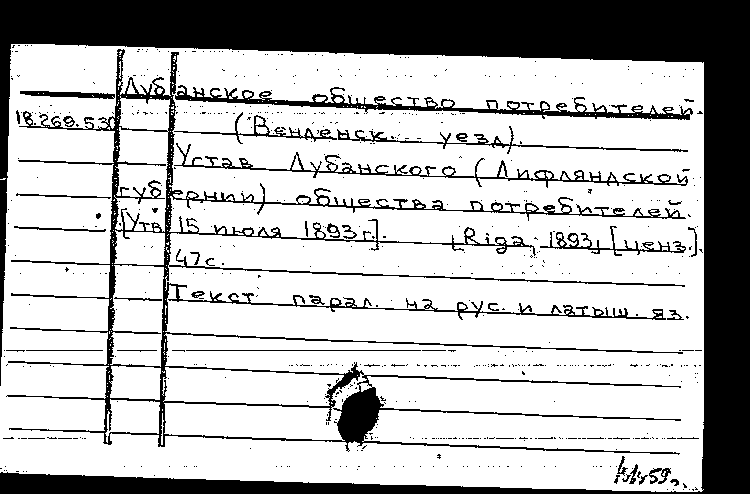 Лубанское общество потребителей.
18.269.530
(Венденск. уезд).
Устав Лубанского (Лифляндской
губернии) общества потребителей.
[Утв. 15 июля 1893 г]. [Riga, 1893] [ценз.].
47 с.
Текст парал. на рус. и латыш. яз.